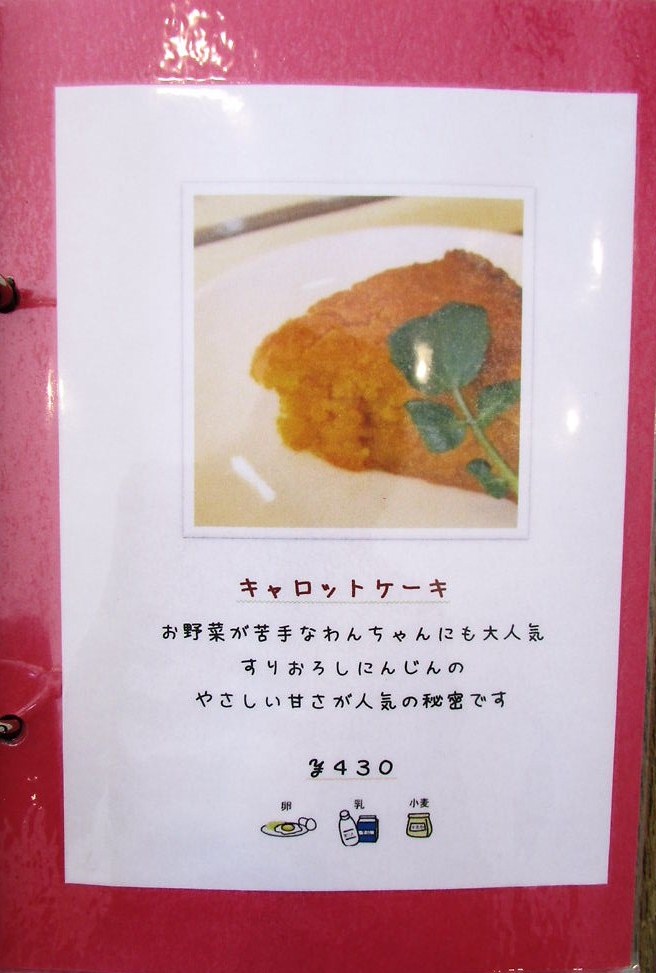 キャロットケーキ
お野菜が苦手なわんちゃんにも大人気
すりおろしにんじんの
やさしい甘さが人気の秘密です
¥430
卵 乳 小麦